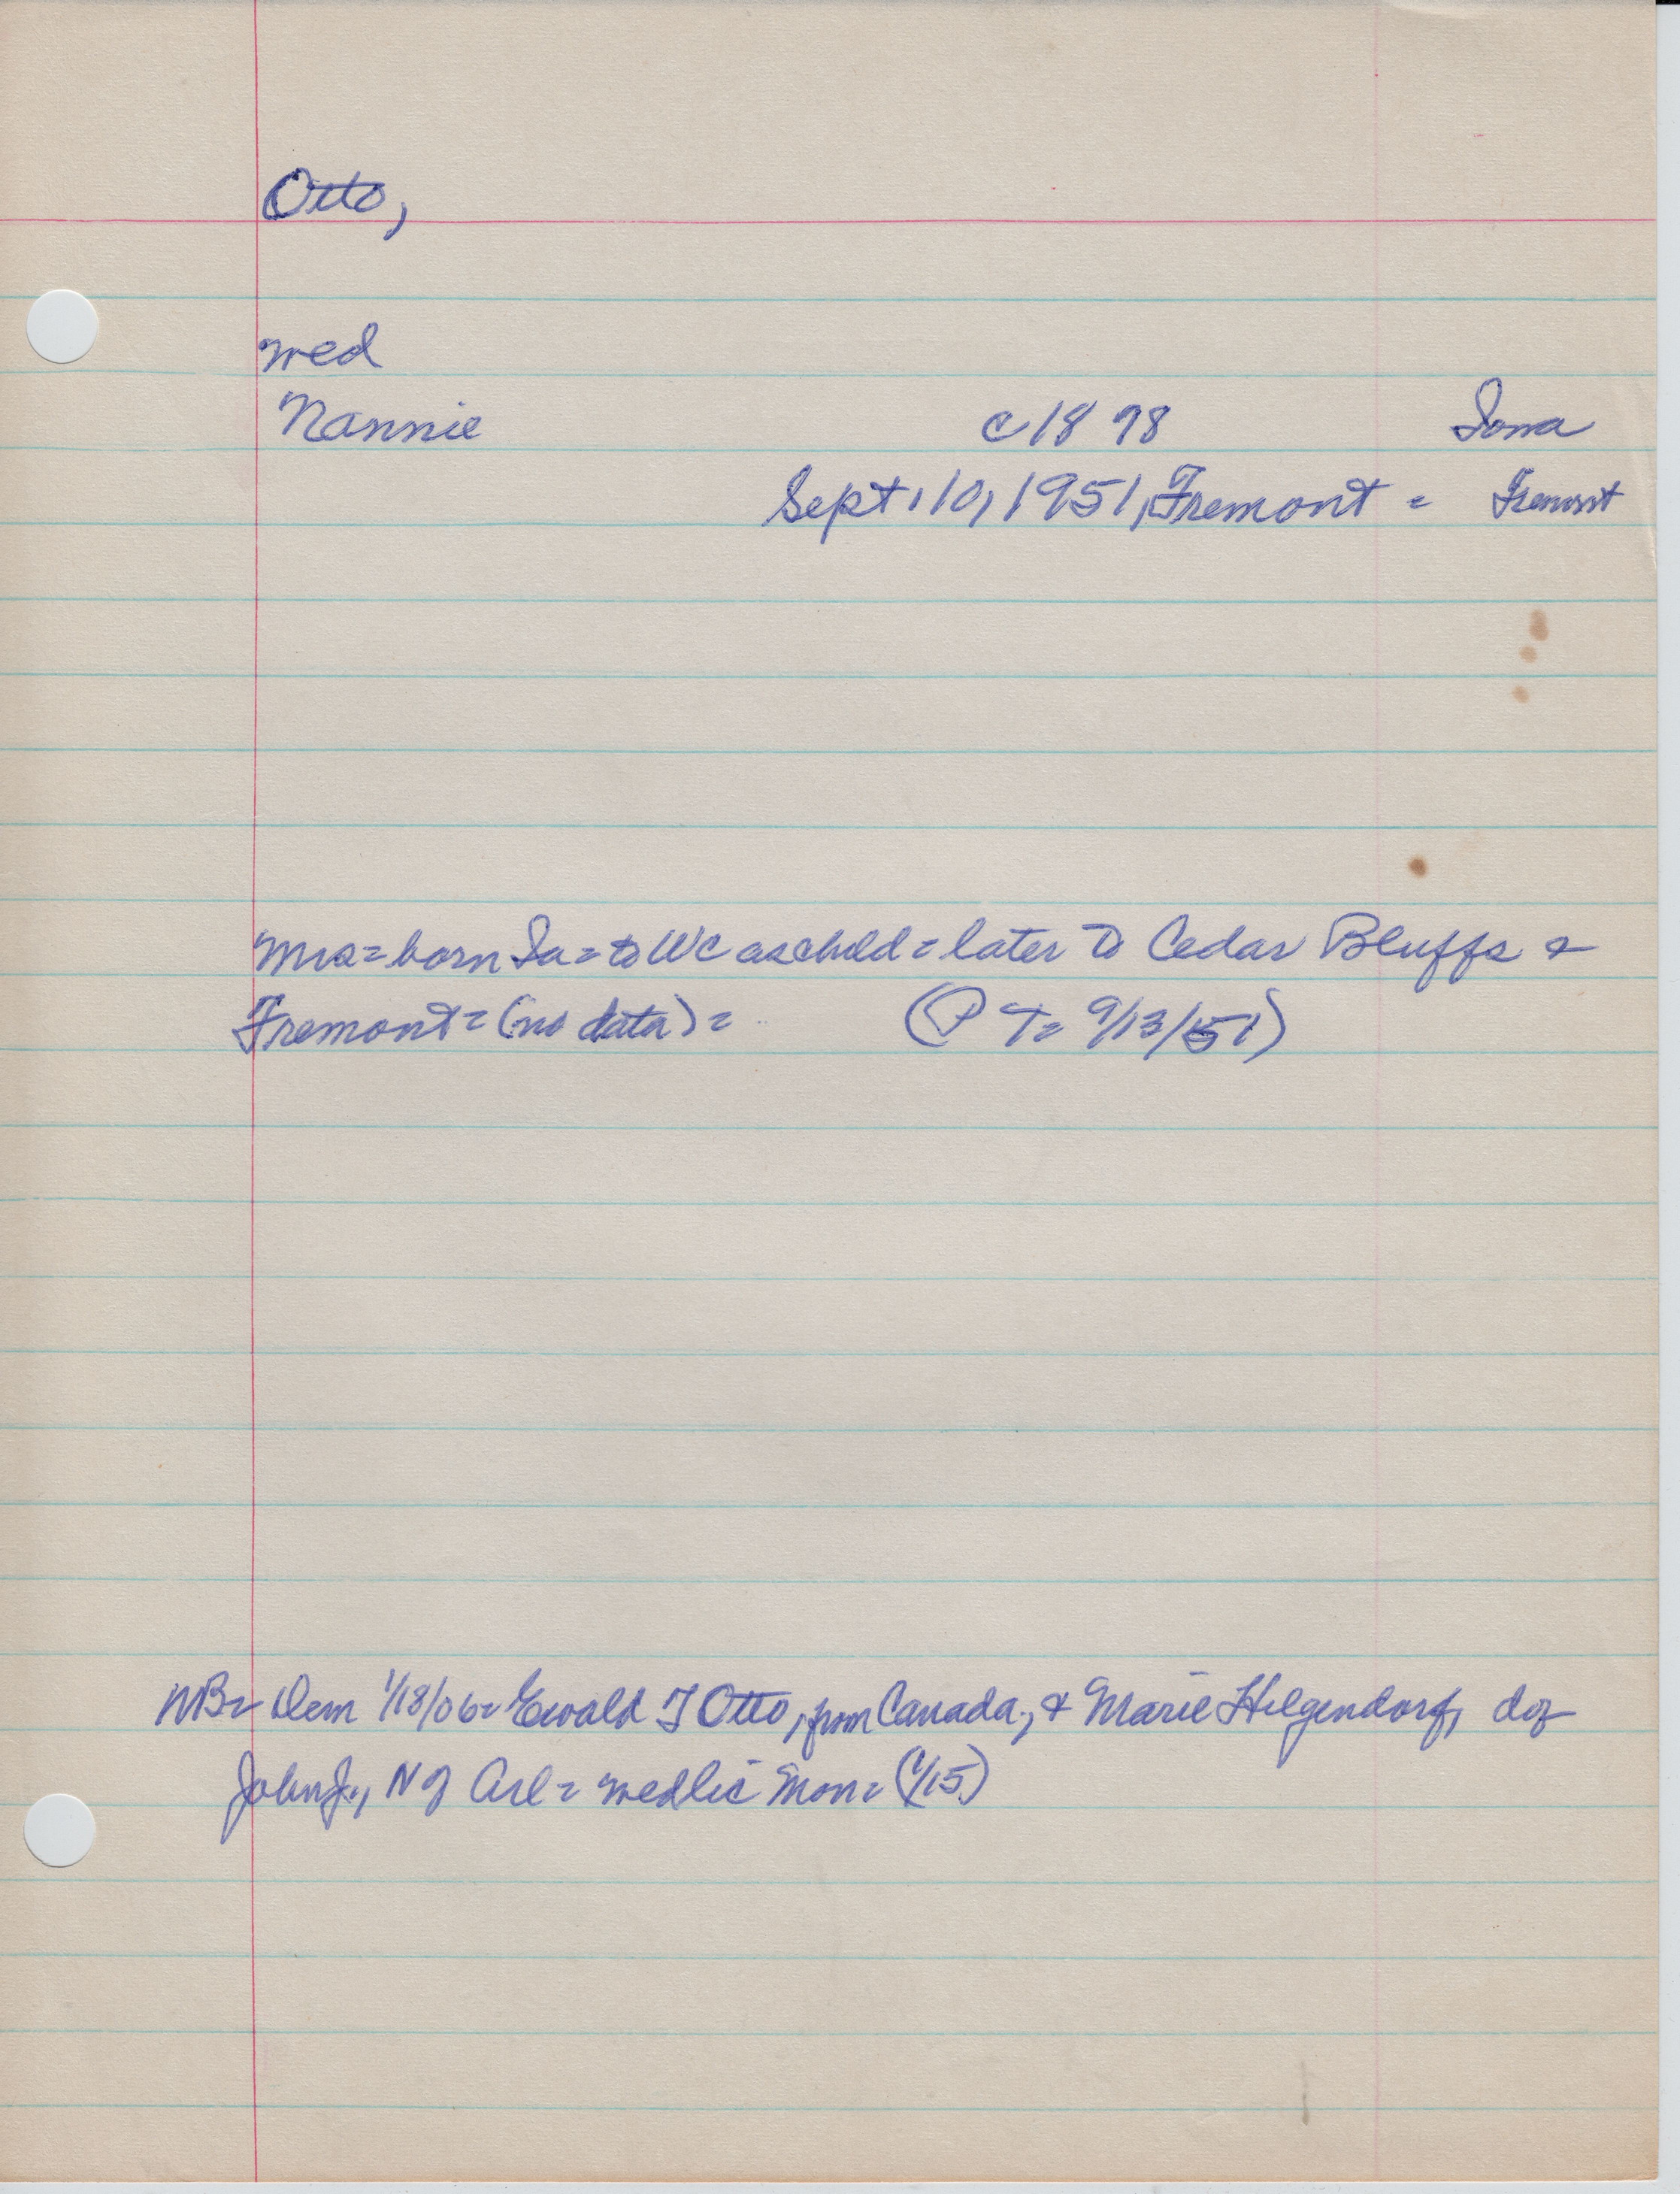 Otto,
wed
Nannie c1898 Iowa
Sept. 10, 1951, Fremont = Fremont
Mrs = born Ia = to WC as child = later to Cedar Bluffs &
Fremont = (no data) = (P T = 9/13/51)
NB = Dem 1/18/06 = Ewald J Otto, from Canada, & Marie Hilgendorf, dof
John J., N of Arl = wed lic Mon = (1/15)